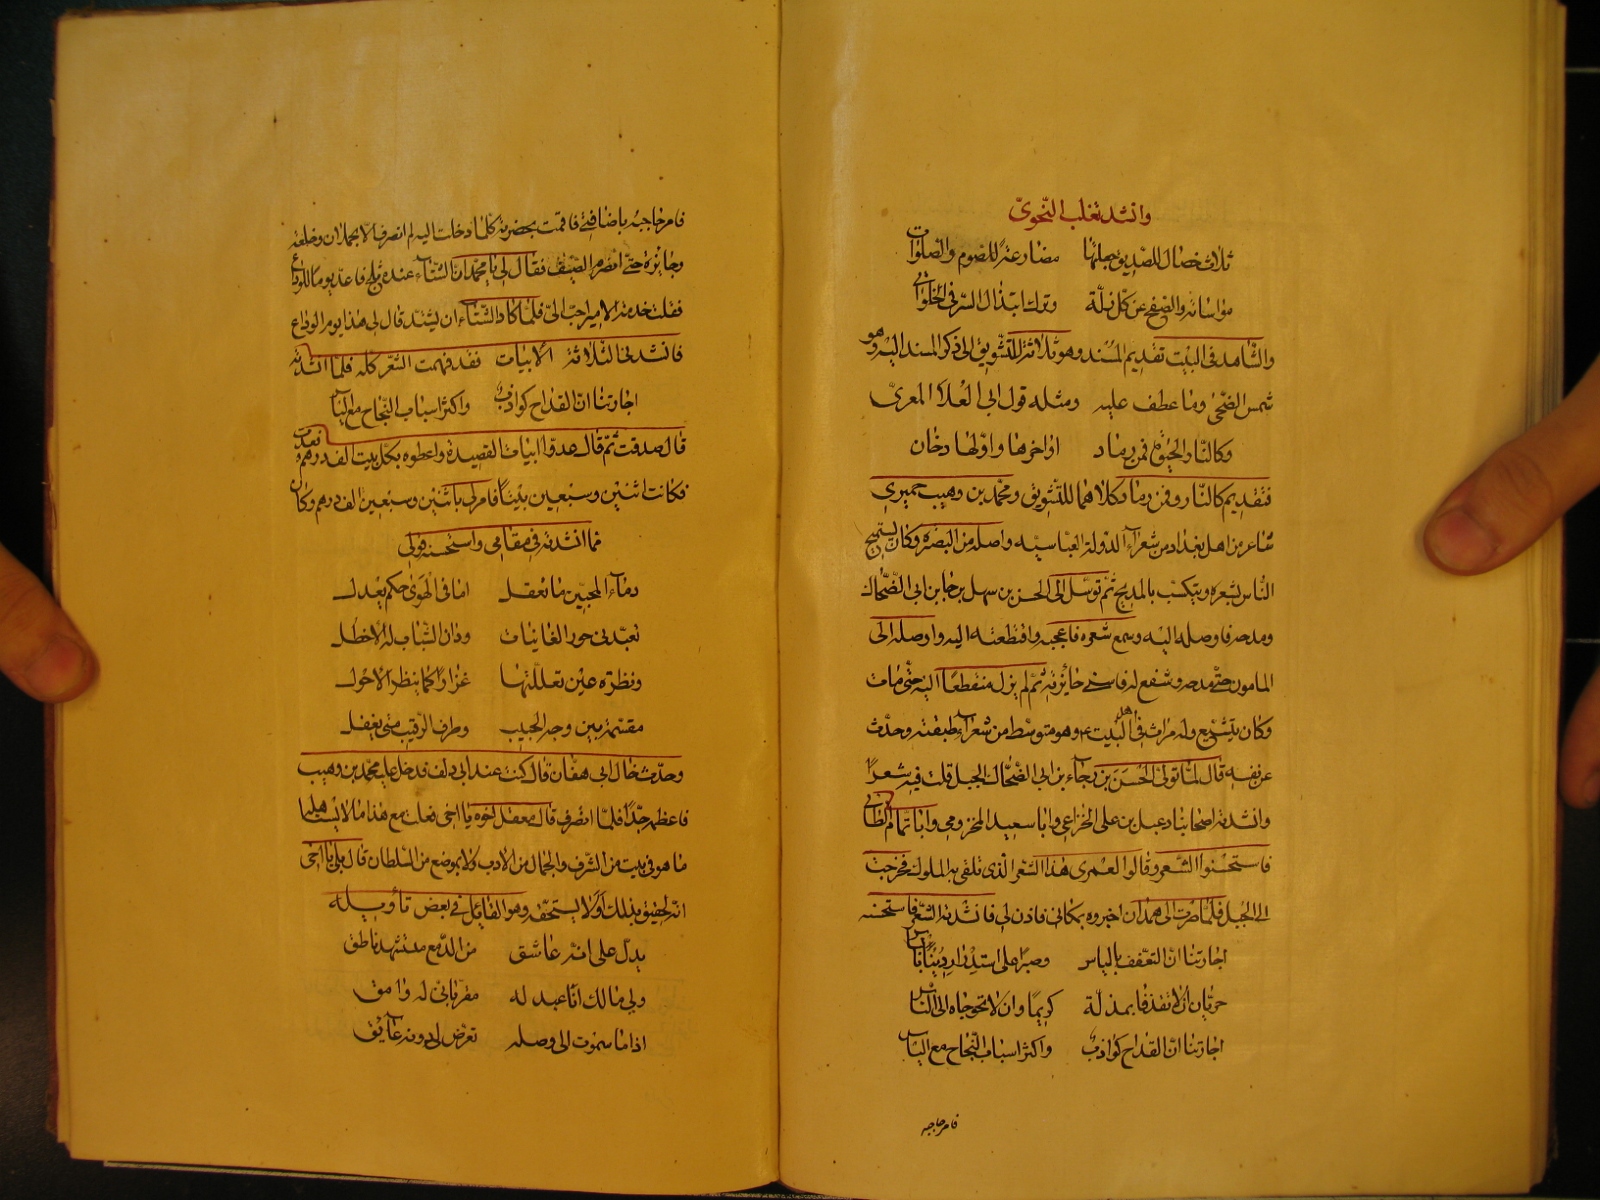 وانشد ثعلب النحوىّ
ثلاث خصال للصديق جعلتها مضارعة للصوم والصلوات
مواساته والصفح عن كل زلّة وترك ابتذال السرّ فى الخلوات
والشّاهد فى البيت تقديم المسند وهو ثلاثة للتشويق الى ذكر المسند اليه وهو
شمس الضّحى وما عطف عليه ومثله قول ابى العلاء المعرىّ
وكالنّار الحيوة فمن رماد اواخرها واوّلها دخان
فتقديم كالنّار ومن رماد كلاهما للتّشويق ومحمّد بن وهيب حميرى
شاعر من اهل بغداد من شعراء الدولة العباسيه واصله من البصرة وكان يستميح
النّاس بشعره ويتكسب بالمديح ثم توسّل الى الحسن بن سهل برجا بن ابى الضّحّاك
ومدحه فاوصله اليه وسمع شعره فاعجبه واقتطعه اليه واوصله الى
المامون حتّى مدحه وشفع له فاسنى جائزته ثم لم يزل منقطعا اليه حتّى مات
وكان يتشيّع وله مراث فى اهل البيت وهو متوسّط من شعراء طبقته وحدّث
عن نفسه قال لمّا تولّى الحسن بن رجاء بن ابى الضّحّاك الجبل قلت فيه شعراً
وانشدته اصحابنا دعبل بن على الخزاعى وابا سعيد المخزومى وابا تمّام الطائى
فاستحسنوا الشّعر وقالوا لعمرى هذا الشّعر الّذى تلقى به الملوك فخرجت
الى الجبل فلمّا صرت الى همدان اخبروه بمكانى فاذن لى فانشدته الشّعر فاستحسنه
اجارتنا انّ التعفّف بالياس وصبرا على استدرار دنيا بابساس
حريّان ان لا تقذفا بمذلّة كريمًا وان لا تحوجاه الى النّاس
اجارتنا انّ القداح كواذب واكثر اسباب النّجاح مع الياس
فامر حاجبه
فامر حاجبه باضافتى فاقمت بحضرته كلما دخلت اليه لم انصرف الا بحملان وخلعة
وجائزة حتّى انصرم الصّيف فقال لى يا محمّد ان الشتاء عندنا علج فاعد يوما للوداع
فقلت خدمة الامير احبّ الىّ فلمّا كاد الشّتاء ان يشتد قال لى هذا يوم الوداع
فانشدنى الثلاثة الابيات فقد فهمت الشّعر كله فلمّا انشدته
اجارتنا انّ القداح كواذب واكثر اسباب النّجاح مع الياس
قال صدقت ثم قال عدوا ابيات القصيدة واعطوه بكل بيت الف درهم فعدت
فكانت اثنين وسبعين بيتا فامر لى باثنين وسبعين الف درهم وكان
مما انشدته فى مقامى واستحسنه قولى
دماء المحبّين ما تعقل اما فى الهوى حكم يعدل
تعبّدنى حور الغانيات ودان الشّباب له الاخطل
ونظرة عين تعللتها غرارًا كما ينظر الاحول
مقسّمة بين وجه الحبيب وطرف الرقيب متى يغفل
وحدّث خال ابى هفّان قال كنت عند ابى دلف فدخل عليه محمّد بن وهيب
فاعظمه جدّا فلمّا انصرف قال معقل اخوه يا اخى فعلت مع هذا ما لا يستاهله
ما هو فى بيت من الشّرف والجمال من الادب ولا بموضع من السّلطان قال بلى يا اخى
انّه لحقيق بذلك اولا يستحقه وهو القائل فى بعض
يدلّ على انه عاشق من الدّمع مستشهد ناطق
ولى مالك انا عبد له مقر بانّى له وامق
اذا ما سموت الى وصله تعرّض لى دونه عائق